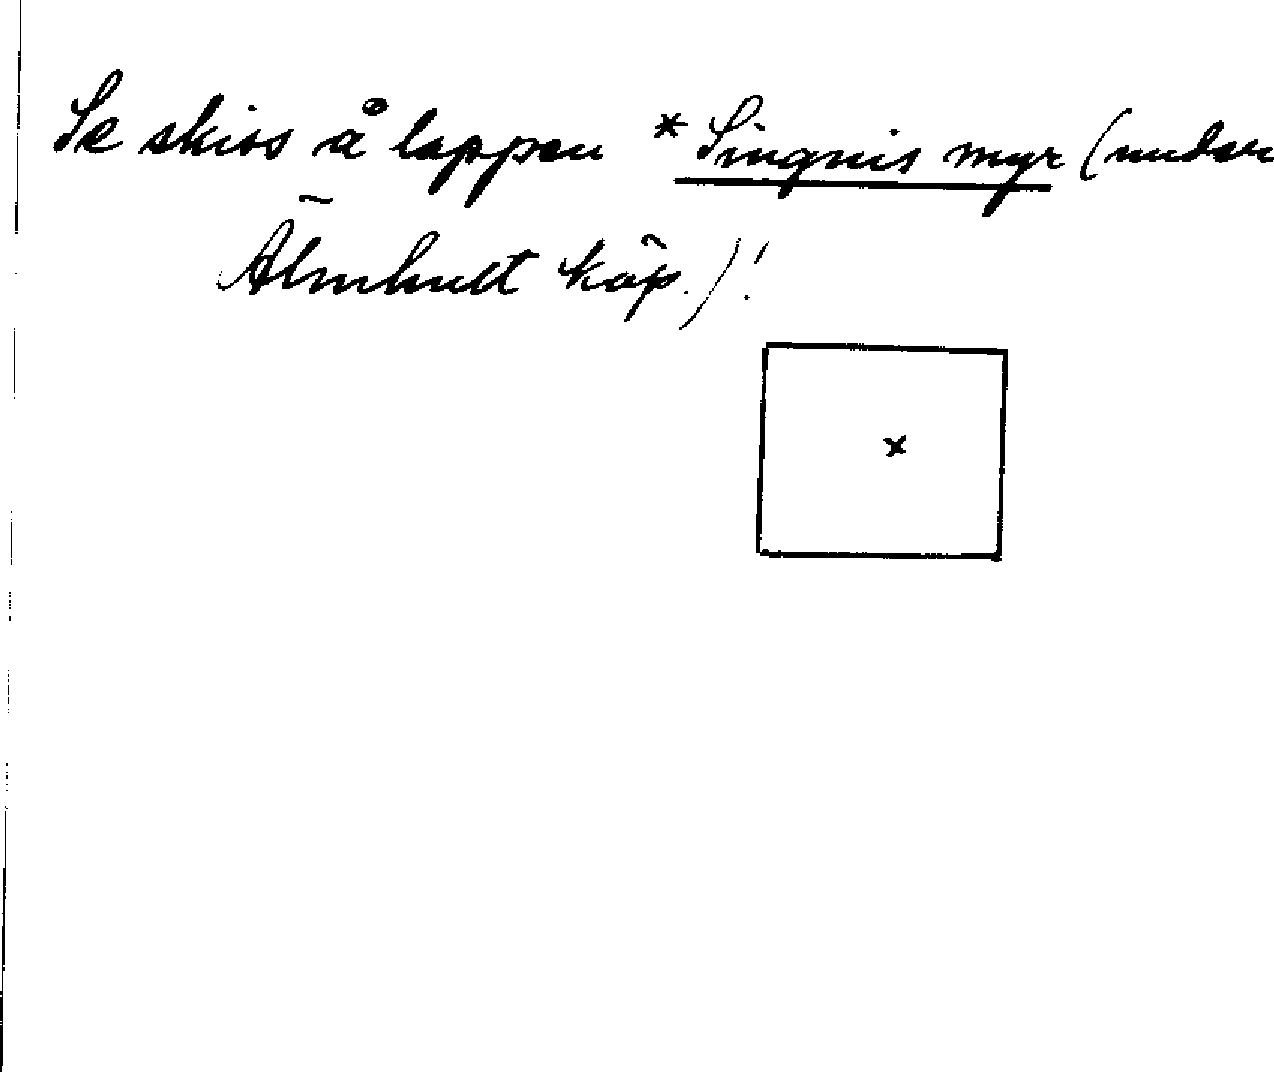 Se skiss å lappen * Singnis myr (under
Älmhult köp.)!
x